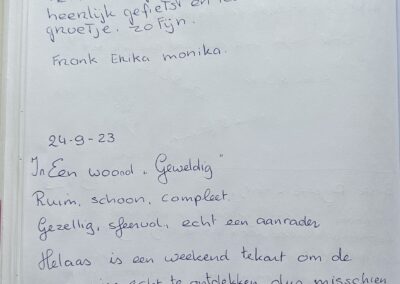 heerlijk gefietst en
groetje. zo fijn.
Frank Erika monika.
24-9-23
In Een woord „Geweldig"
Ruim, schoon, compleet.
Gezellig, sfeervol, echt een aanrader
Helaas is een weekend tekort om de
echt te ontdekken dus misschien